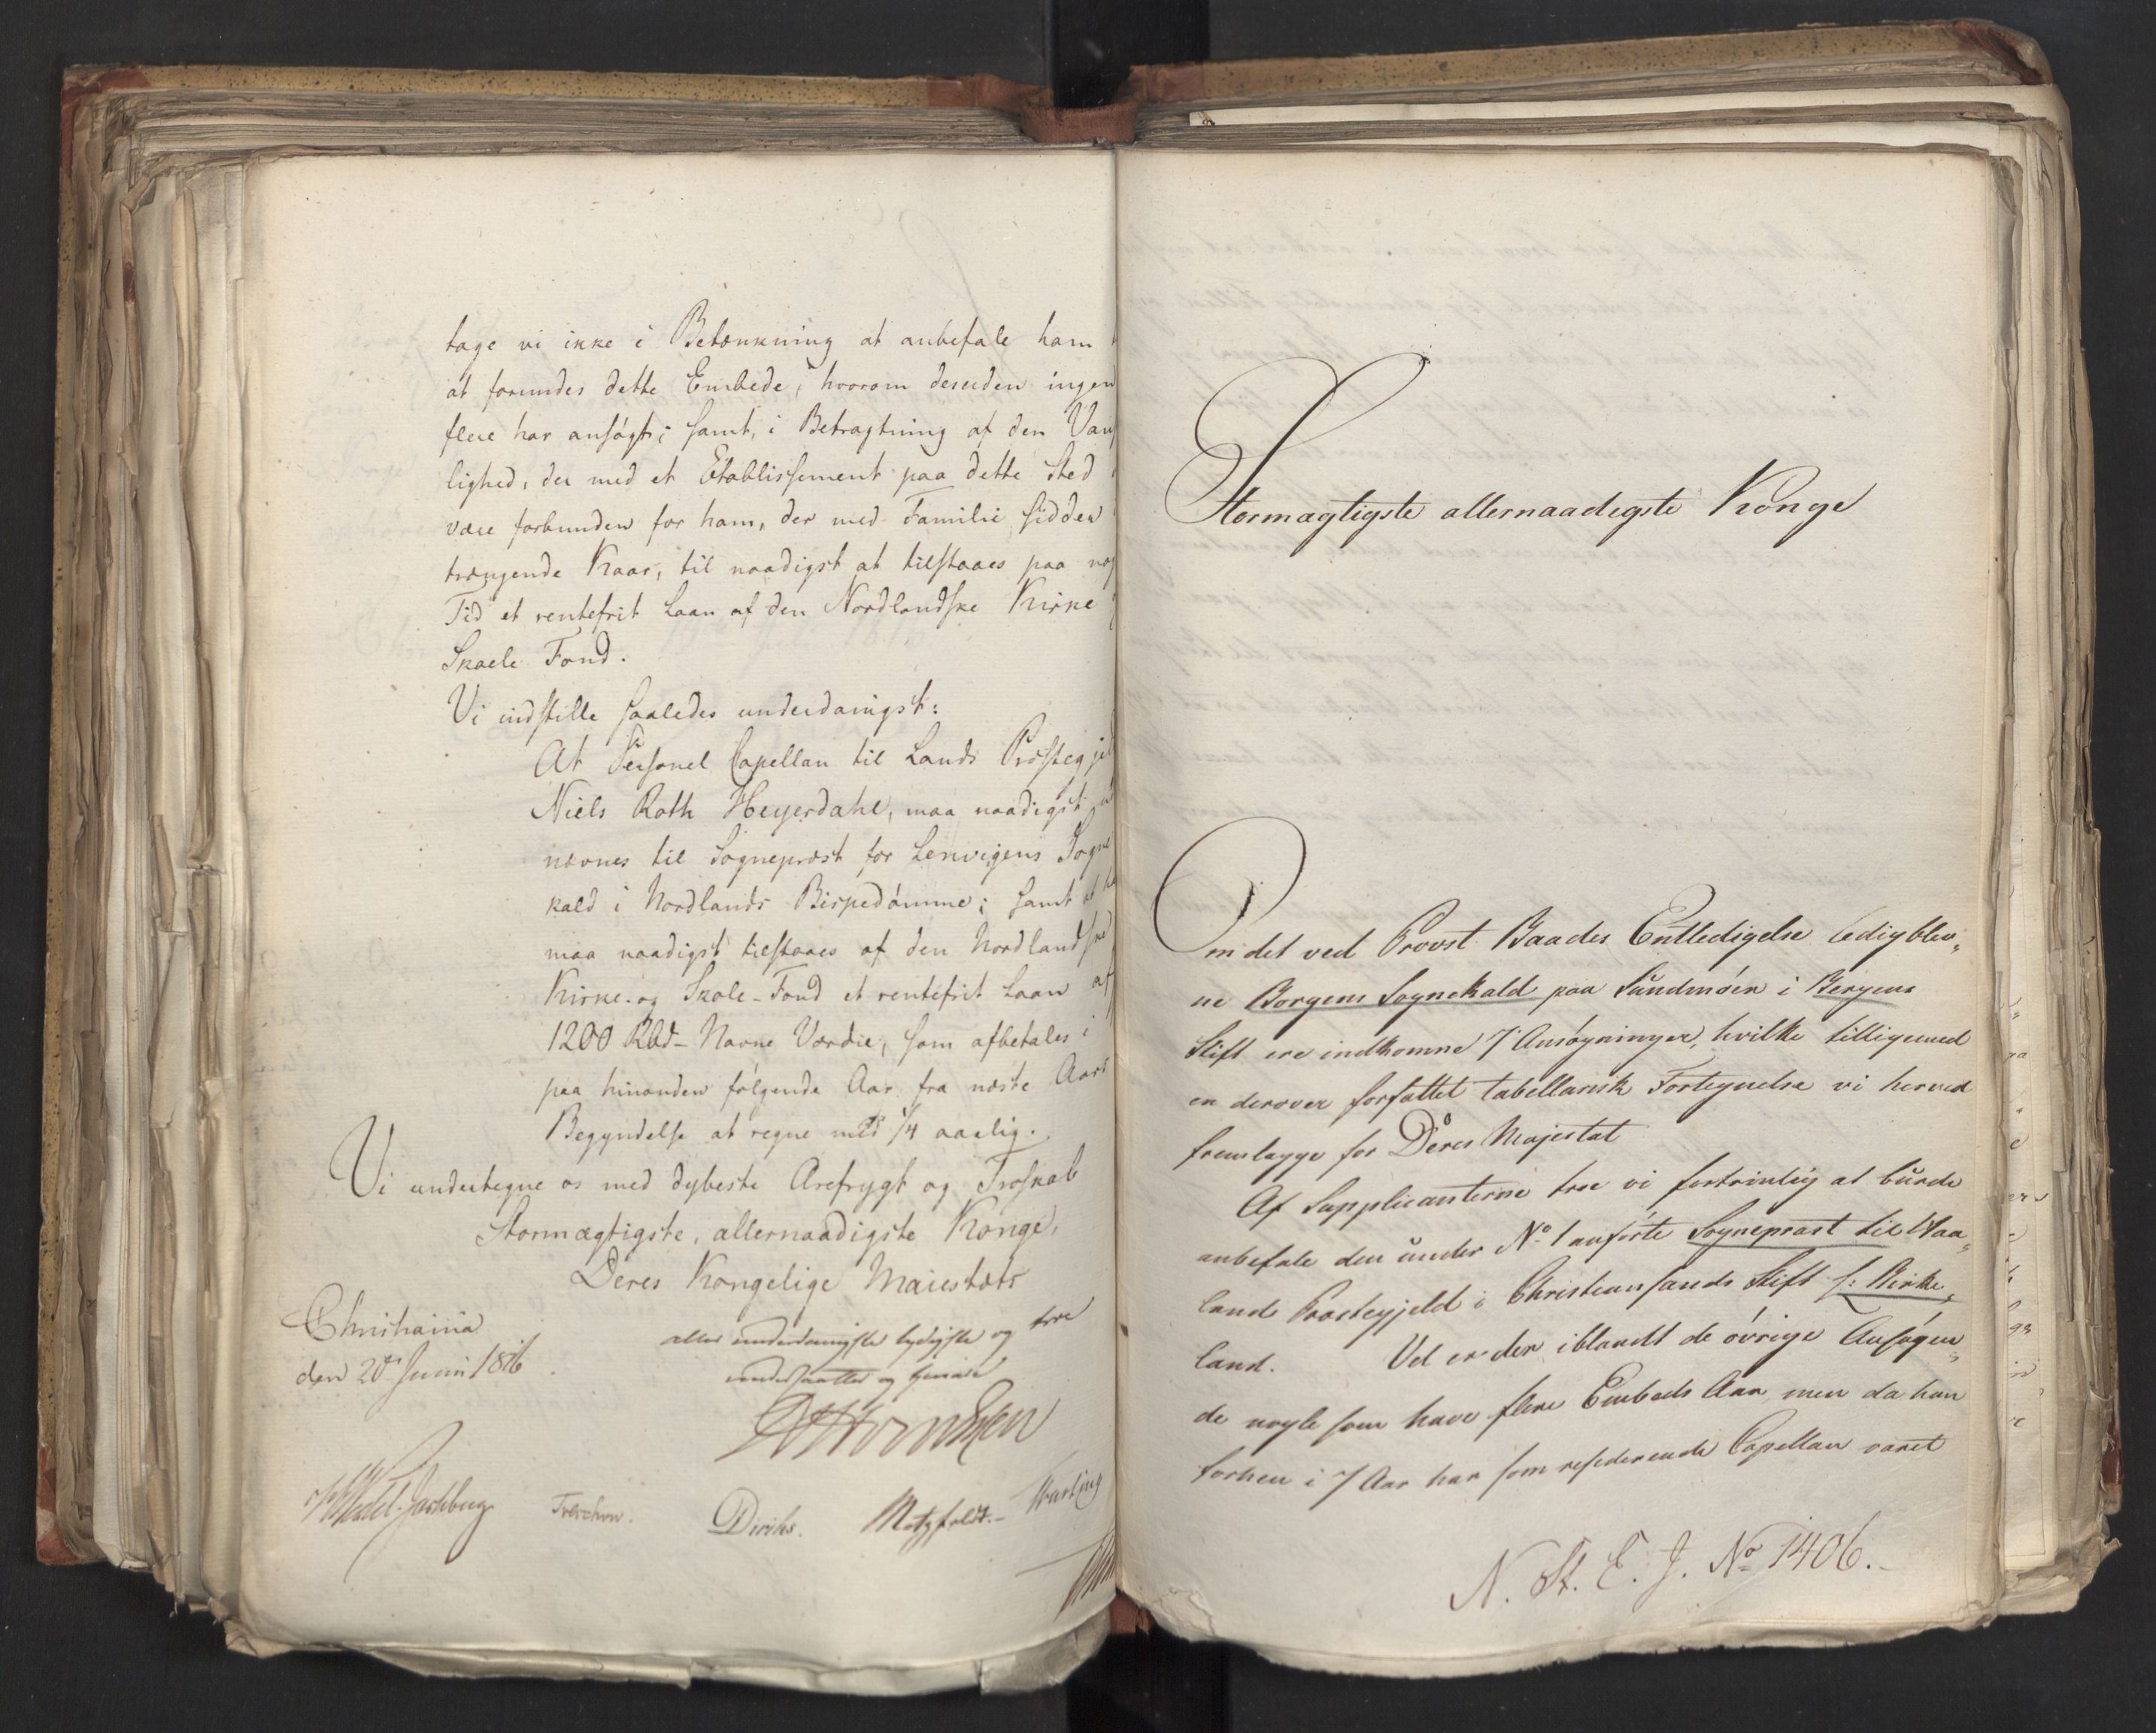 tage vi ikke i Betænkning at anbefale ham
at forundes dette Embede, hvorom desuden ingen
flere har ansøgt; samt, i Betragtning af den Van
lighed, der med et Etablissement paa dette Sted
være forbunden for ham, der med Familie sidder
trængende Kaar, til naadigst at tilstaaes paa
Tid et rentefrit Laan af den Nordlandske Kirke
Skole Fond.
Vi indstille saaledes underdanigst:
At Personel Capellan til Lands Præstegj
Niels Roth Heyerdahl, maa naadigst
nævnes til Sognepræst for Lenvigens Sogne
kald i Nordlands Bispedømme; samt at
maa naadigst tilstaaes af den Nordlandske
Kirke- og Skole-Fond et rentefrit Laan af
1200 Rbd- Navne Værdie, som afbetales i
paa hinanden følgende Aar fra næste Aars
Begyndelse at regne med 1/4 aarlig.
Vi undertegne os med dybeste Ærefrygt og Troskab
Stormægtigste, allernaadigste Konge,
Deres Kongelige Majestæts
Christiania
den 20de Juni 1816
allerunderdanigste lydigste og troe
undersaatter og tjenere
Wedel-Jarlsberg
Treschow.
Diriks.
Motzfeldt.-
Stormægtigste allernaadigste Konge
Om det ved Provst Baades Entledigelse ledigblev,
ne Borgens Sognekald paa Sundmöer i Bergens
Stift ere indkomne 7 Ansøgninger, hvilke tilligemed
en derover forfattet tabellarisk Fortegnelse vi herved
fremlægge for Deres Majestæt
Af Supplicanterne troe vi fortrinlig at burde
anbefale den under No 1 anførte Sognepræst til Waa,
lands Præstegjeld i Christiansands Stift S: Kirke,
land. Vel er der iblandt de øvrige Ansøgen,
de nogle som have flere Embeds Aar, men da han
forhen i 7 Aar har som residerende Capellan været
N. St. E. J. No 1406.-